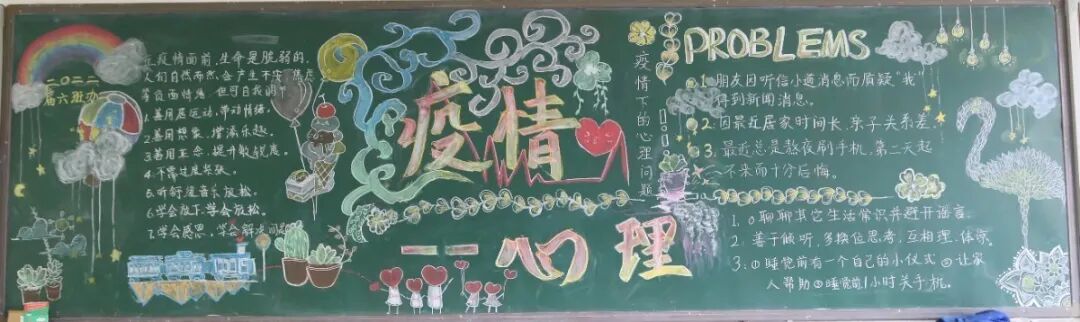 二〇二二
届六班办
在疫情面前,生命是脆弱的,
人们自然而然,会产生不安、焦虑
等负面情绪,但可自我调节
1.善用居运动,带动情绪。
2.善用想象,增添乐趣。
3.善用正念,提升敏锐度。
4.不需过度紧张。
5.听舒缓音乐放松。
6.学会放下,学会放松。
7.学会感恩,学会解决问题
疫情
一一心理
疫情下的心理问题
PROBLEMS
1.朋友因听信小道消息而质疑“我”
得到新闻消息。
2.因最近居家时间长,亲子关系差。
3.最近总是熬夜刷手机,第二天起
不来而十分后悔。
1.聊聊其它生活常识并避开谣言.
2.善于倾听,多换位思考,互相理、体谅。
3:①睡觉前有一个自己的小仪式②让家
人帮助③睡觉前1小时关手机。